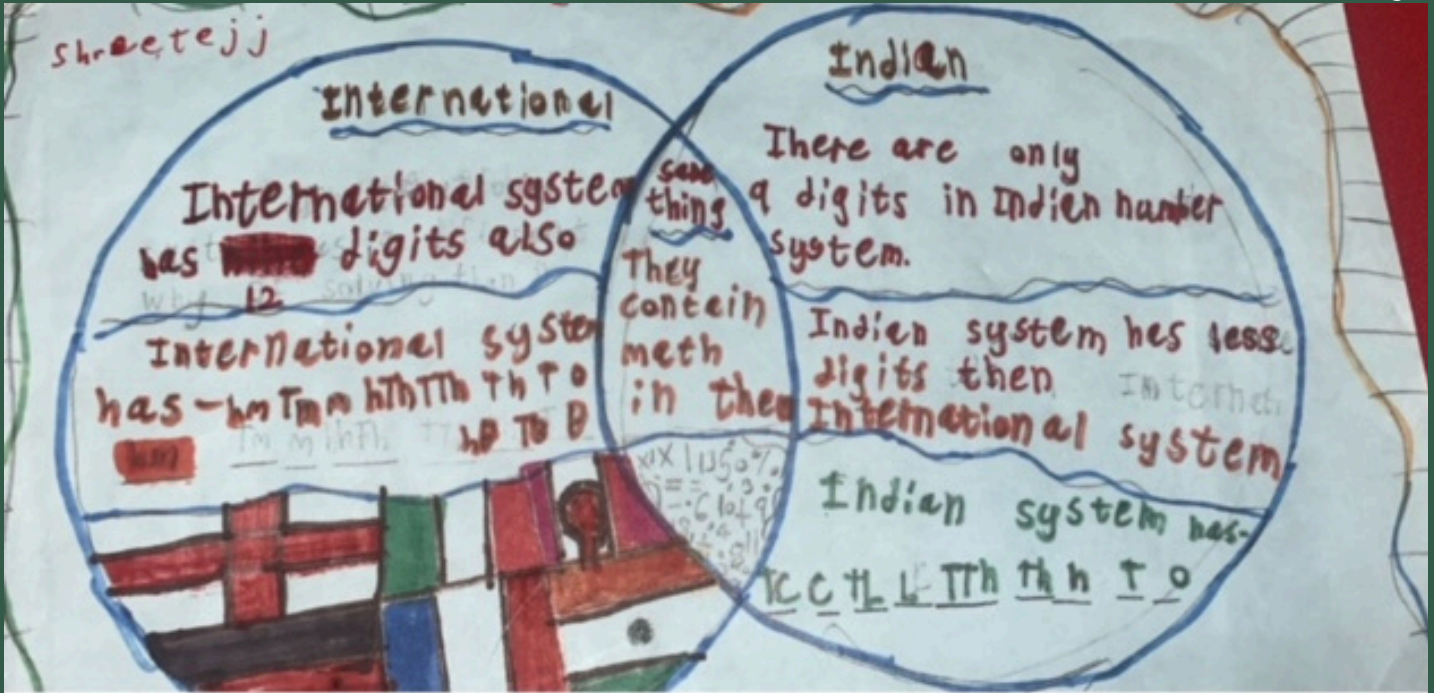 Shreetejj
International
International system
has digits also
12
International system
has - hm Tm m hTh TTh Th T O
hB TB B
same
thing
They
contain
math
in them
Indian
There are only
9 digits in Indian number
system.
Indian system has less
digits then
International system
Indian system has-
TC C TL L TTh Th h T O